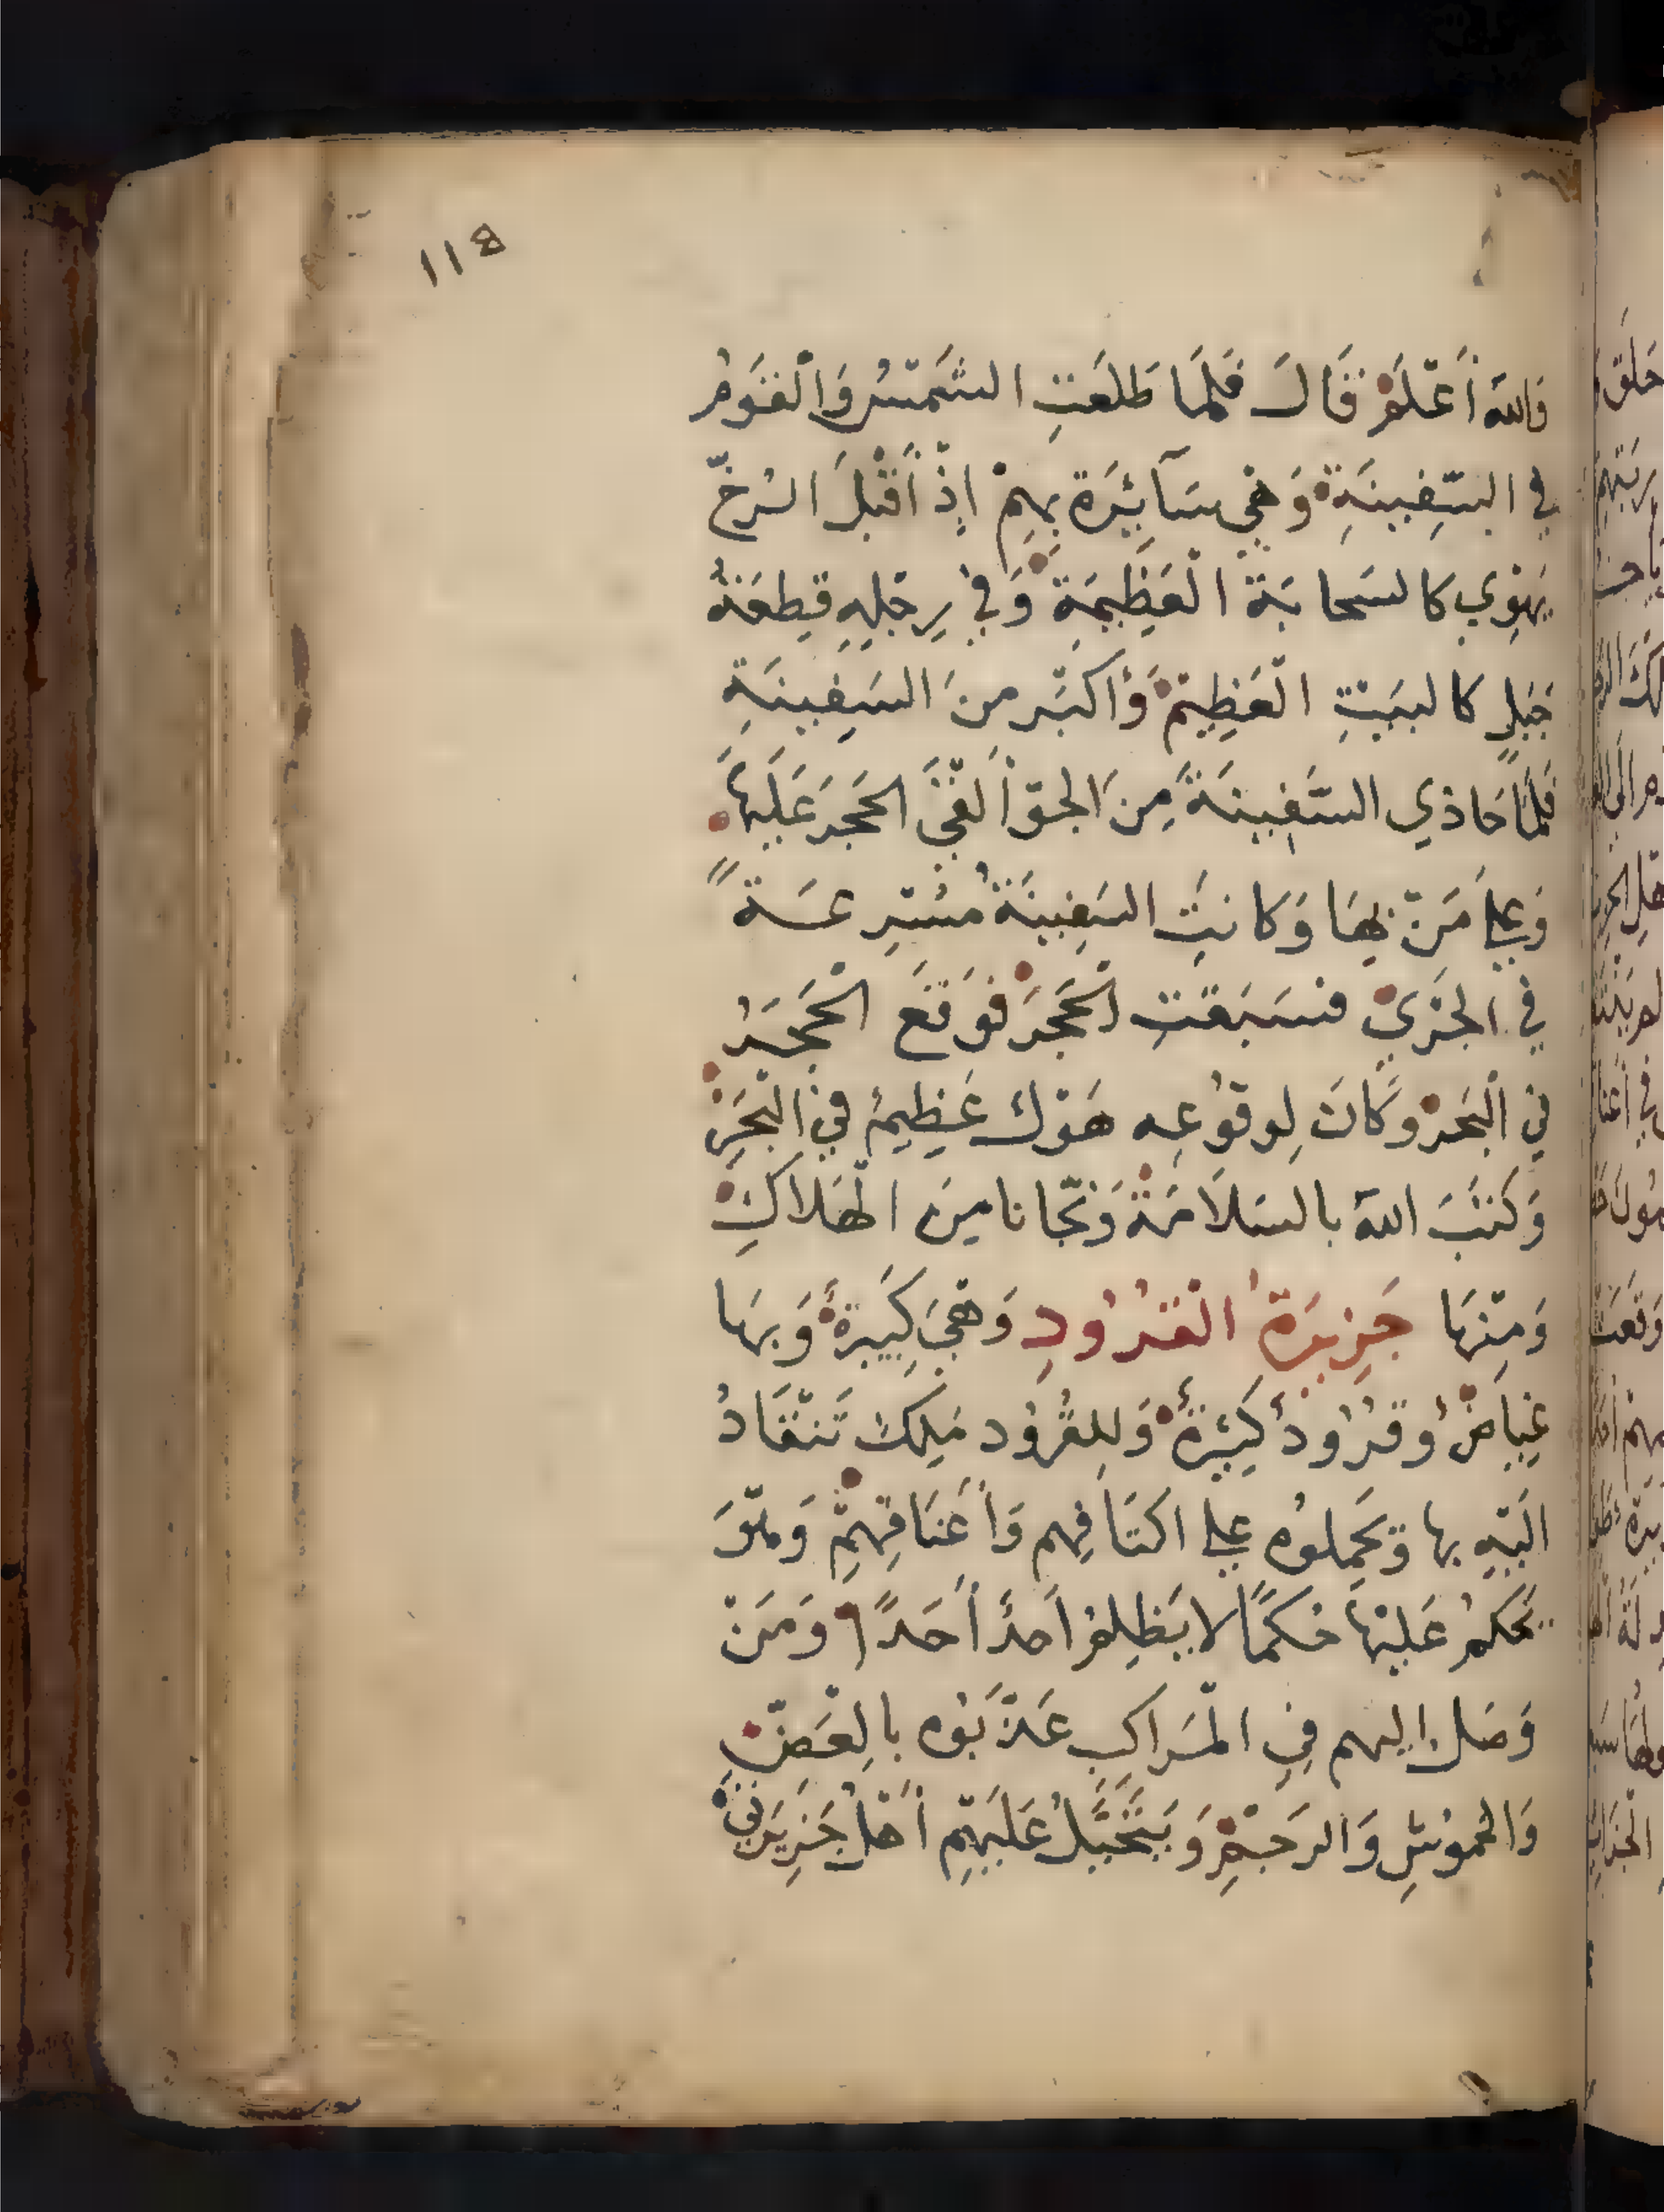 118
فالله أَعْلَمْ قَالَ فَلَمَا طَلَعَتِ الشَمْسُ وَالْقَوْمُ
في السَّفِينَةِ وَهْيَ سَآئِرَة بِهِمْ اِذْ أَقْبَلَ الرخّ
يَهْوِي كالسَحابَة الْعَظِيمَةِ وَفي رِجْلِهِ قِطعَةُ
جَبَلٍ كالبَيْتِ الْعَظِيمْ وَأكبَر منَ السَفِينَةِ
فَلَمّا حَاذي السَّفِينَةَ مِنَ الجوّ أَلْقَى الحَجَرَ عَلَيْهَا
وَعلي مَنْ بِهَا وَكانتِ السَفِينَةُ مُسْرِعَة
في الجَرْيِ فسَبَقَتِ الْحَجَرَ فوَقَعَ الْحَجَرُ
في الْبَحْرْ وَكَانَ لِوقوُعِه هَوْل عَظِيمُ في الْبَحْرِ
وَكَتَبَ اللهَ بالسَلَامَةْ وَنَجّانا مِنَ الْهَلاَكِ
وَمِنْهَا جَزِيرَةُ الْقُرُودِ وَهْيَ كَبِيرَةُ وَبهَا
غِيَاضُ وقُرُودُ كَثِيرَةُ وَلِلقُرُود مَلِكْ تَنْقَادُ
الَيْهِ بها وَيَحمِلوُه علي اكتَافِهم وَأَعْنَاقِهِمْ وَهْوَ
يَحكمُ عَلَيْهَا حُكمًا لا يَظلِمُ أحدُ أَحَدًا وَمَنْ
وَصَل اليهم فِي الْمَرَاكِبِ عَذَّبَوُه بالِعَضّ
وَالخموُشِ وَالرَجْمِ وَيَتَحَيَّلُ عَلَيْهِمْ أَهْلُ جَزِيرَتَيْ